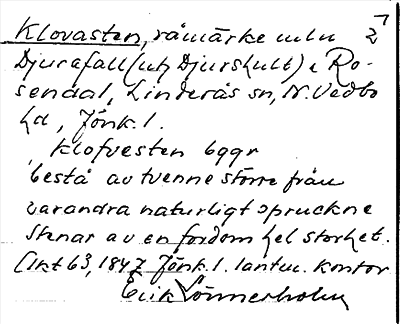 Klovasten, råmärke mln 7/2
Djurafall (utj Djurshult) o Ro-
sendal, Linderås sn, N. Vedbo
hd, Jönk. l.
Klofvesten byggr
bestå av tvenne större från
varandra naturligt spruckne
stenar av en fordom hel storhet.
(Akt 63, 1847 Jönk. l. lantm. kontor
Erik Lönnerholm